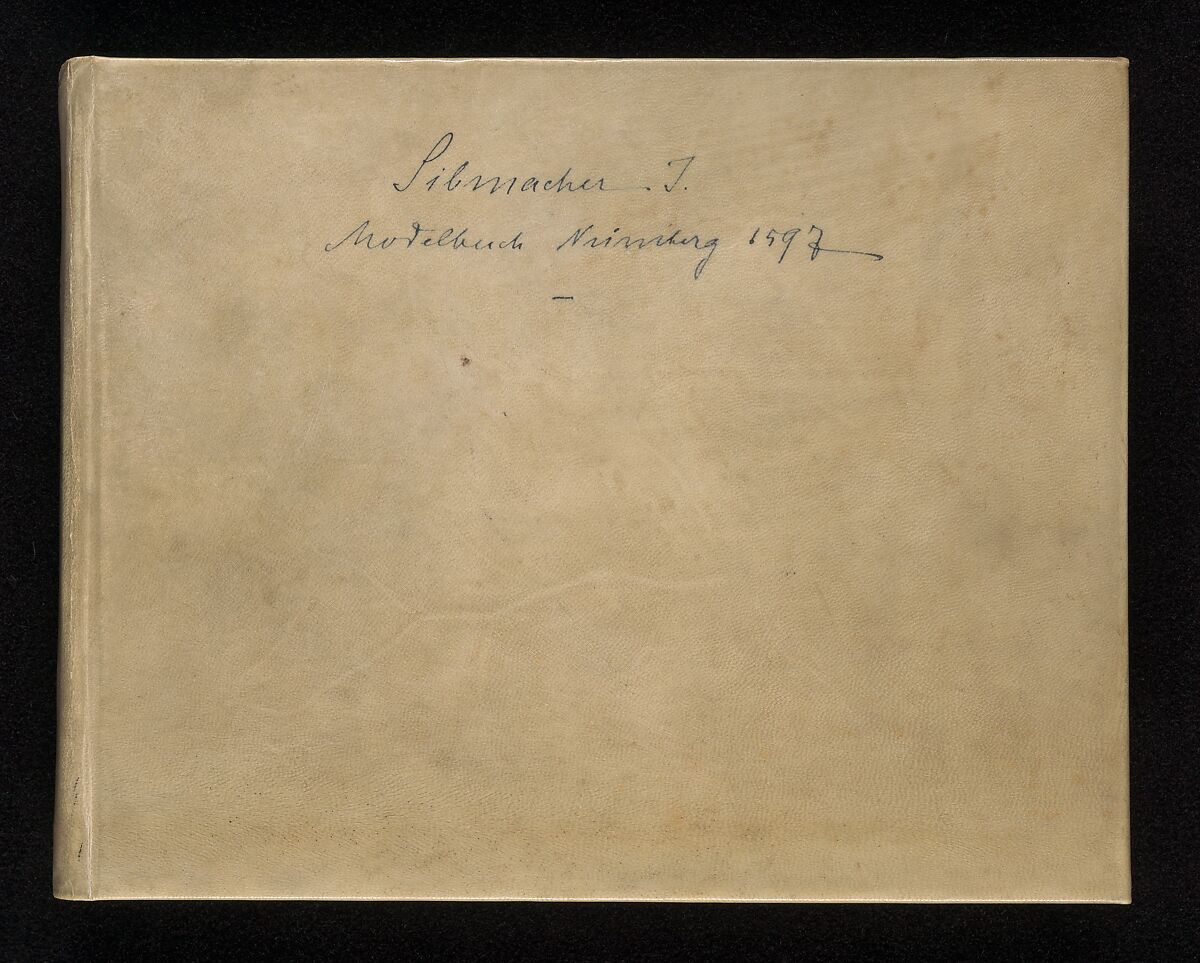 Sibmacher. J.
Modelbuch Nürnberg 1597
—